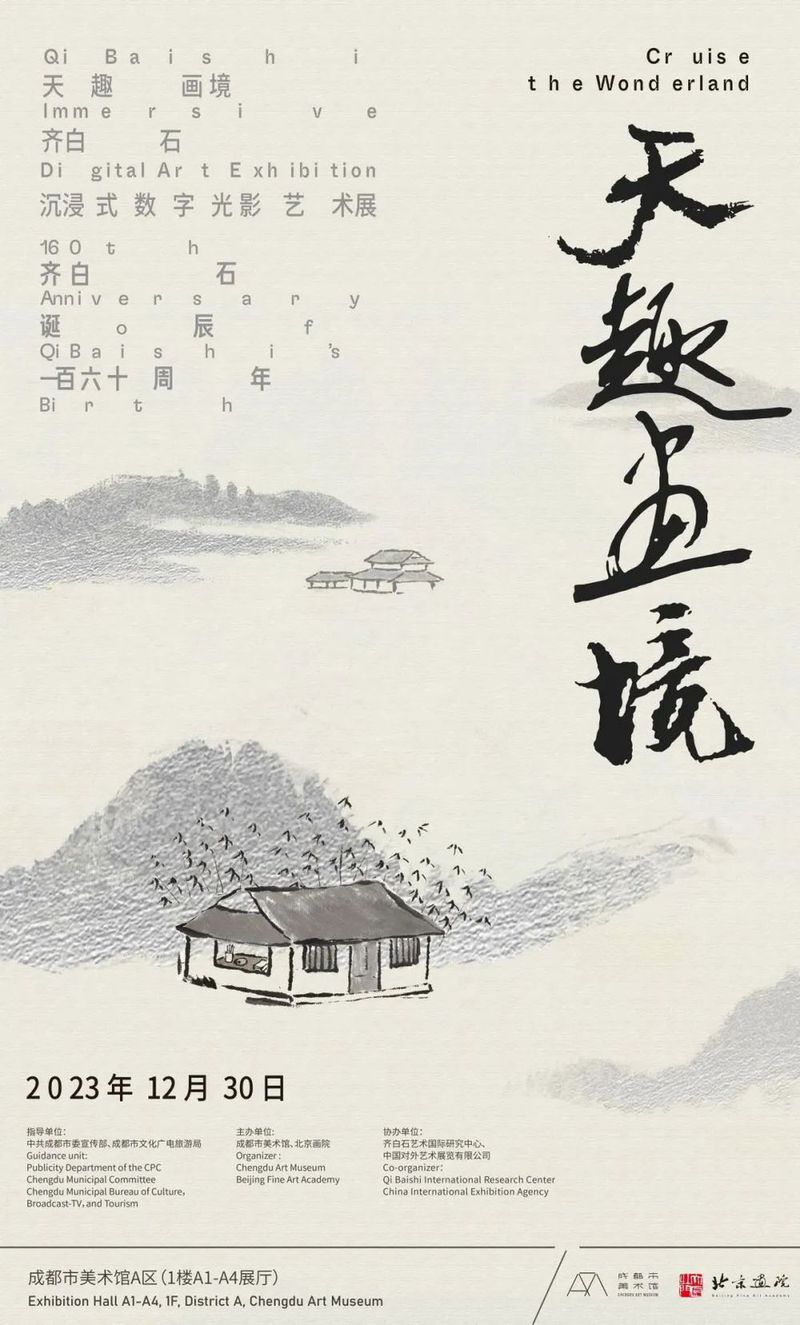 Qi Baishi
天趣画境
Immersive
齐白石
Digital Art Exhibition
沉浸式数字光影艺术展
160th
齐白石
Anniversary
诞o辰f
QiBaishi's
一百六十周年
Birth
Cruise
the Wonderland
天趣画境
2023年 12月 30日
指导单位：
中共成都市委宣传部、成都市文化广电旅游局
Guidance unit:
Publicity Department of the CPC
Chengdu Municipal Committee
Chengdu Municipal Bureau of Culture,
Broadcast-TV, and Tourism
主办单位：
成都市美术馆、北京画院
Organizer :
Chengdu Art Museum
Beijing Fine Art Academy
协办单位：
齐白石艺术国际研究中心、
中国对外艺术展览有限公司
Co-organizer:
Qi Baishi International Research Center
China International Exhibition Agency
成都市美术馆A区（1楼A1-A4展厅）
Exhibition Hall A1-A4, 1F, District A, Chengdu Art Museum
成都市
美术馆
CHENGDU ART MUSEUM
北京画院
Beijing Fine Art Academy